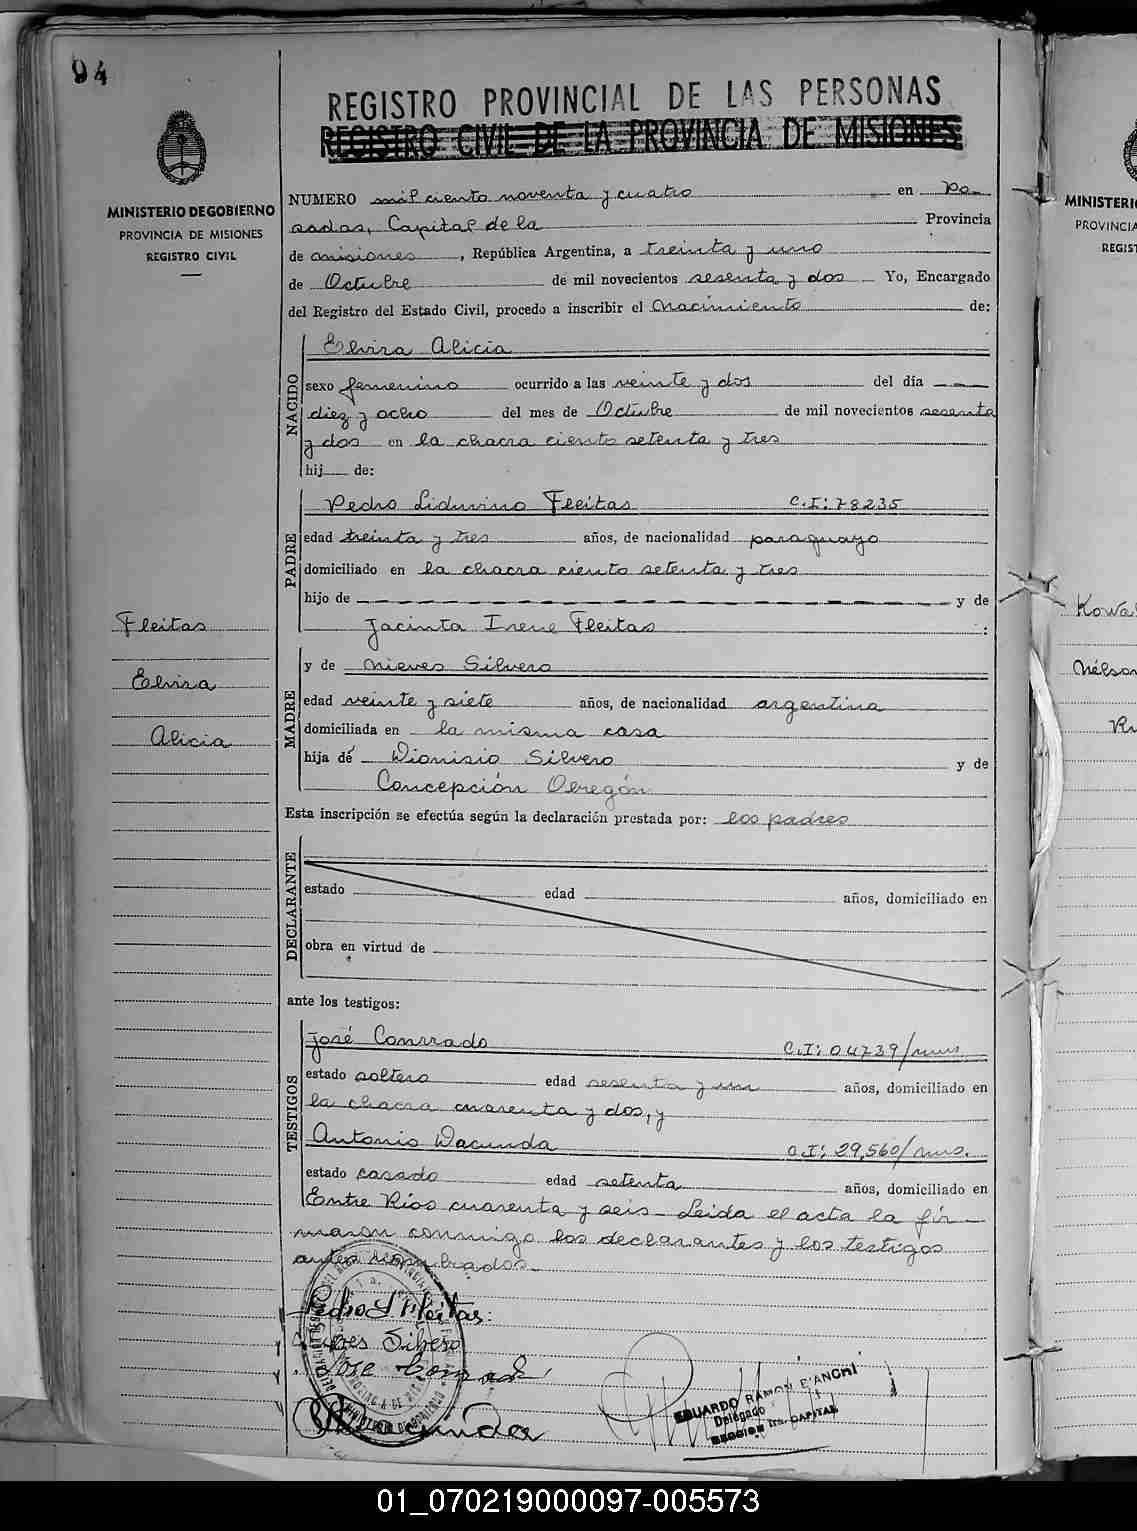 94
MINISTERIO DE GOBIERNO
PROVINCIA DE MISIONES
REGISTRO CIVIL
Fleitas
Elvira
Alicia
REGISTRO PROVINCIAL DE LAS PERSONAS
REGISTRO CIVIL DE LA PROVINCIA DE MISIONES
NUMERO mil ciento noventa y cuatro en Po-
sadas, Capital de la Provincia
de misiones, República Argentina, a treinta y uno
de Octubre de mil novecientos sesenta y dos Yo, Encargado
del Registro del Estado Civil, procedo a inscribir el Nacimiento de:
NACIDO
Elvira Alicia
sexo femenino ocurrido a las veinte y dos del día
diez y ocho del mes de Octubre de mil novecientos sesenta
y dos en la chacra ciento setenta y tres
hij de:
PADRE
Pedro Liduvino Fleitas C.I: 78235
edad treinta y tres años, de nacionalidad paraguayo
domiciliado en la chacra ciento setenta y tres
hijo de y de
Jacinta Irene Fleitas :
MADRE
y de Nieves Silvero
edad veinte y siete años, de nacionalidad argentina
domiciliada en la misma casa
hija de Dionisio Silvero y de
Concepción Obregón
Esta inscripción se efectúa según la declaración prestada por: los padres
DECLARANTE
estado edad años, domiciliado en
obra en virtud de
ante los testigos:
TESTIGOS
José Conrrado C.I: 04239/mns.
estado soltero edad sesenta y un años, domiciliado en
la chacra cuarenta y dos, y
Antonio Dacunda C.I: 29,560/mns.
estado casado edad setenta años, domiciliado en
Entre Ríos cuarenta y seis - Leida el acta la fir-
maron conmigo los declarantes y los testigos
antes nombrados.-
Pedro L Fleitas
Silvero
Jose
EDUARDO RAMON BIANCHI
Delegado
SECCION 1ra. CAPITAL
MINISTERI
PROVINCIA
REGIST
Kowal
Nélson
01_070219000097-005573